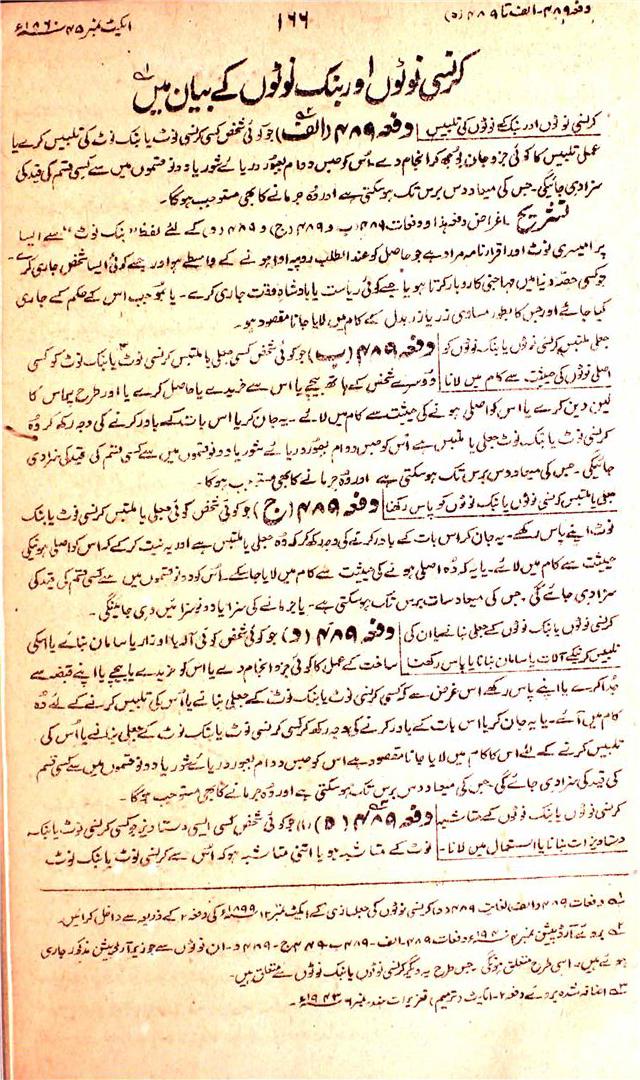 دفعہ ۴۸۹۔ الف تا ۴۸۹ (ہ) ۱۶۶ ایکٹ نمبر ۴۵ ۱۸۶۰ء
کرنسی نوٹوں اور بنک نوٹوں کے بیان میں
کرنسی نوٹوں اور بنک کے نوٹوں کی تلبیس دفعہ ۴۸۹ (الف) جو کوئی شخص کسی کرنسی نوٹ یا بنک نوٹ کی تلبیس کرے یا
عمل تلبیس کا کوئی جزو جان بوجھ کر انجام دے۔ اس کو حبس دوام بعبور دریائے شور یا دونوں قسموں میں سے کسی قسم کی قید کی
سزا دی جائیگی۔ جس کی میعاد دس برس تک ہو سکتی ہے اور وہ جرمانے کا بھی مستوجب ہوگا۔
تشریح باغراض دفعہ ہذا و دفعات ۴۸۹ (ب) و ۴۸۹ (ج) و ۴۸۹ (د) کے لئے لفظ "بنک نوٹ" سے ایسا
پرامیسری نوٹ اور اقرارنامہ مراد ہے جو حامل کو عند الطلب روپیہ ادا ہونے کے واسطے ہو اور جسے کوئی ایسا شخص جاری کرے۔
جو کسی حصہ دنیا میں مہاجنی کاروبار کرتا ہو یا جسے کوئی ریاست یا بادشاہ وقت جاری کرے۔ یا بموجب اس کے حکم کے جاری
کیا جائے اور جس کا بطور مساوی زر یا زر بدل کے کام میں لایا جانا مقصود ہو۔
جعلی یا ملتبس کرنسی نوٹوں یا بنک نوٹوں کو دفعہ ۴۸۹ (ب) جو کوئی شخص کسی جعلی یا ملتبس کرنسی نوٹ یا بنک نوٹ کو کسی
اصلی نوٹوں کی حیثیت سے کام میں لانا دوسرے شخص کے ہاتھ بیچے یا اس سے خریدے یا حاصل کرے یا اور طرح پر اس کا
لین دین کرے یا اس کو اصلی ہونے کی حیثیت سے کام میں لائے۔ یہ جان کر یا اس بات کے باور کرنے کی وجہ رکھ کر وہ
کرنسی نوٹ یا بنک نوٹ جعلی یا ملتبس ہے اس کو حبس دوام بعبور دریائے شور یا دونوں قسموں میں سے کسی قسم کی قید کی سزا دی
جائیگی۔ جس کی میعاد دس برس تک ہو سکتی ہے اور وہ جرمانے کا بھی مستوجب ہوگا۔
جعلی یا ملتبس کرنسی نوٹوں یا بنک نوٹوں کو پاس رکھنا دفعہ ۴۸۹ (ج) جو کوئی شخص کوئی جعلی یا ملتبس کرنسی نوٹ یا بنک
نوٹ اپنے پاس رکھے۔ یہ جان کر یا اس بات کے باور کرنے کی وجہ رکھ کر کہ وہ جعلی یا ملتبس ہے اور یہ نیت کر کے کہ اس کو اصلی ہونیکی
حیثیت سے کام میں لائے۔ یا یہ کہ وہ اصلی ہونے کی حیثیت سے کام میں لایا جاسکے۔ اس کو دونوں قسموں میں سے کسی قسم کی قید کی
سزا دی جائے گی جس کی میعاد سات برس تک ہو سکتی ہے۔ یا جرمانے کی سزا یا دونوں سزائیں دی جائینگی۔
کرنسی نوٹوں یا بنک نوٹوں کے جعلی بنانے یا ان کی دفعہ ۴۸۹ (د) جو کوئی شخص کوئی آلہ یا اوزار یا سامان بنائے یا اسکی
تلبیس کرنیکے آلات یا سامان بنانا یا پاس رکھنا ساخت کے عمل کا کوئی جزو انجام دے یا اس کو خریدے یا بیچے یا اپنے قبضہ سے
جدا کرے یا اپنے پاس رکھے اس غرض سے کہ کسی کرنسی نوٹ یا بنک نوٹ کے جعلی بنانے یا اس کی تلبیس کرنے کے لئے وہ
کام میں آئے۔ یا یہ جان کر یا اس بات کے باور کرنے کی وجہ رکھ کر کہ کسی کرنسی نوٹ یا بنک نوٹ کے جعلی بنانے یا اس کی
تلبیس کرنے کے لئے اس کا کام میں لایا جانا مقصود ہے اس کو حبس دوام بعبور دریائے شور یا دونوں قسموں میں سے کسی قسم
کی قید کی سزا دی جائے گی جس کی میعاد دس برس تک ہو سکتی ہے اور وہ جرمانے کا بھی مستوجب ہوگا۔
کرنسی نوٹوں یا بنک نوٹوں کے متشابہ دفعہ ۴۸۹ (ہ) (۱) جو کوئی شخص کسی ایسی دستاویز جو کسی کرنسی نوٹ یا بنک
دستاویزات بنانا یا استعمال میں لانا۔ نوٹ کے متشابہ ہو یا اتنی متشابہ ہو کہ اس سے کرنسی نوٹ یا بنک نوٹ
۱؎ دفعات ۴۸۹ (الف) لغایت ۴۸۹ (د) کرنسی نوٹوں کی جعلسازی کے ایکٹ نمبر ۱۲ ۱۸۹۹ء کی دفعہ ۲ کے ذریعہ سے داخل کرائیں۔
۲؎ بروئے آرڈیننس نمبر ۴ ۱۹۴۰ء دفعات ۴۸۹۔ الف۔ ۴۸۹ ب۔ ۴۸۹ ج۔ ۴۸۹ د۔ ان نوٹوں سے جو زیر آرڈیننس مذکور جاری
ہوئے ہیں۔ اسی طرح متعلق ہونگی۔ جس طرح یہ دیگر کرنسی نوٹوں یا بنک نوٹوں سے متعلق ہیں۔
۳؎ اضافہ شدہ بروئے دفعہ ۲۔ ایکٹ (ترمیم) تعزیرات ہند نمبر ۶ ۱۹۴۳ء۔